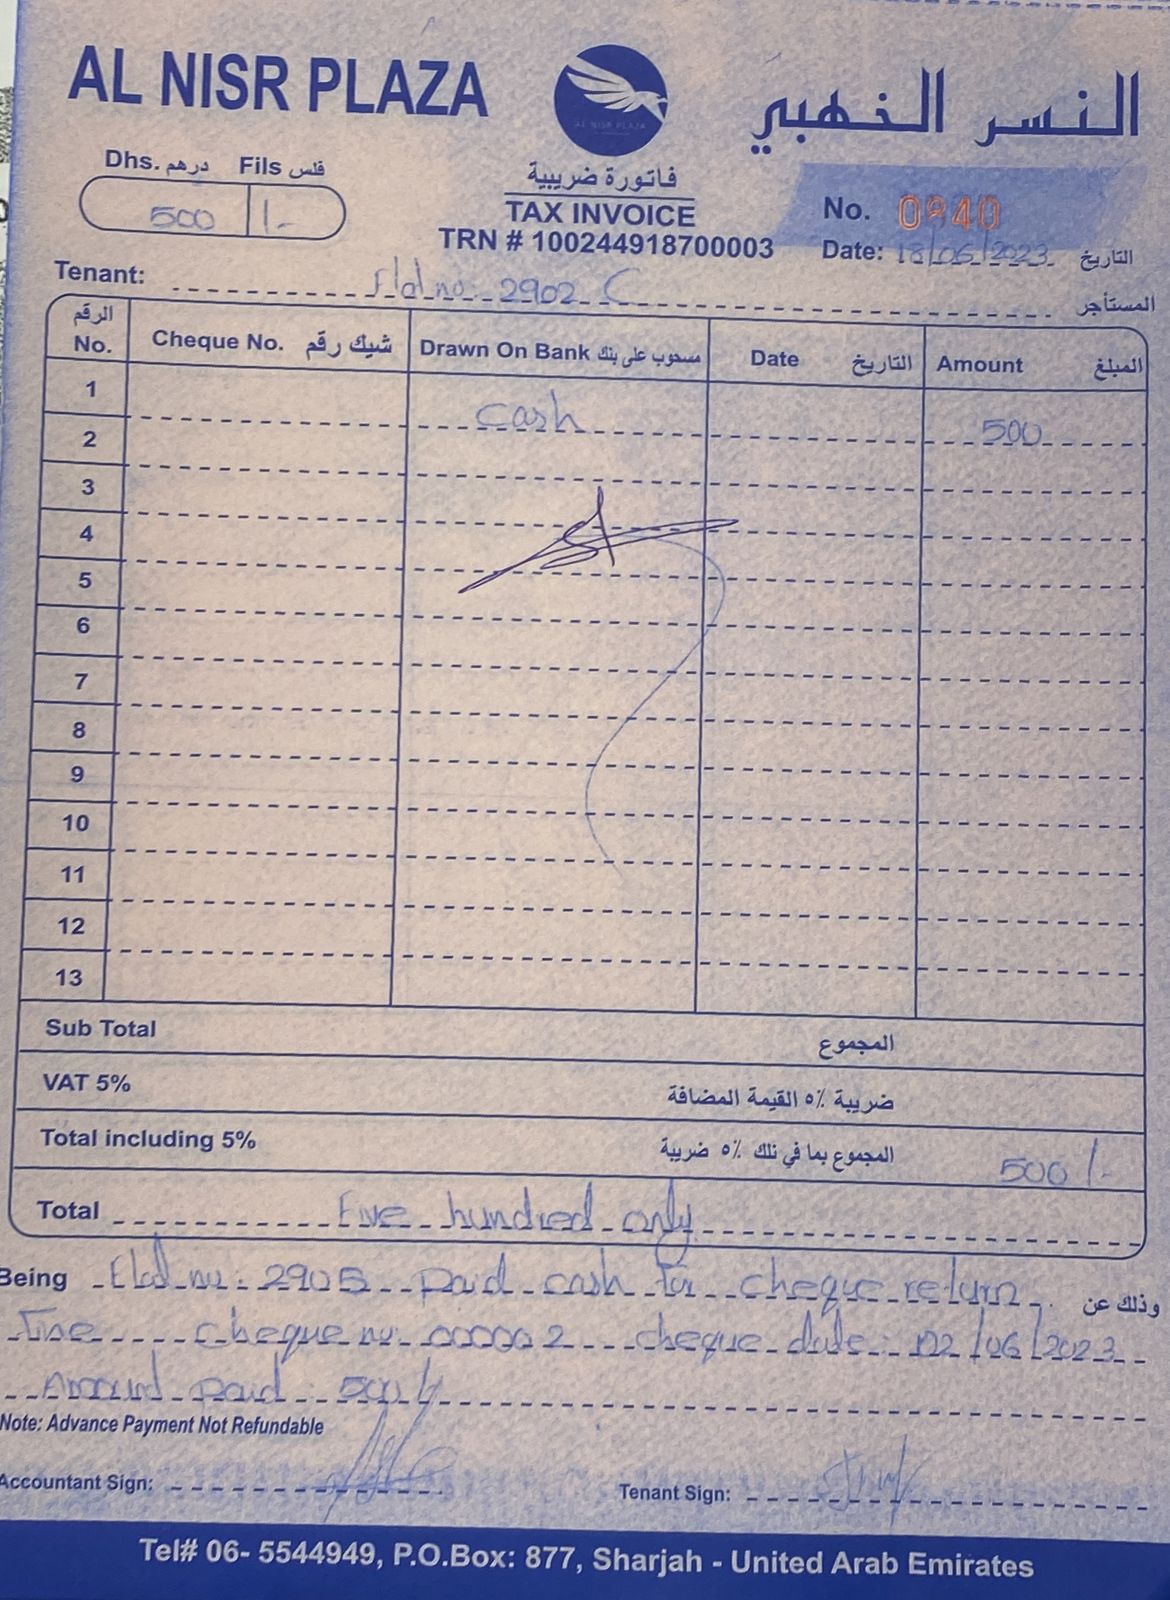 AL NISR PLAZA
النسر الذهبي
AL NISR PLAZA
Dhs. درهم Fils فلس
500 /-
فاتورة ضريبية
TAX INVOICE
TRN # 100244918700003
No. 0840
Date: 18/06/2023 التاريخ
Tenant: Flat no: 2902 C المستأجر
الرقم No. Cheque No. شيك رقم Drawn On Bank مسحوب على بنك Date التاريخ Amount المبلغ
1 cash 500
2
3
4
5
6
7
8
9
10
11
12
13
Sub Total المجموع
VAT 5% ضريبة ٥٪ القيمة المضافة
Total including 5% المجموع بما في ذلك ٥٪ ضريبة 500/-
Total Five hundred only
Being Flat no: 2905 paid cash for cheque return وذلك عن
Fine cheque no. 000002 cheque date: 02/06/2023
Amount paid: 500/-
Note: Advance Payment Not Refundable
Accountant Sign:
Tenant Sign:
Tel# 06- 5544949, P.O.Box: 877, Sharjah - United Arab Emirates